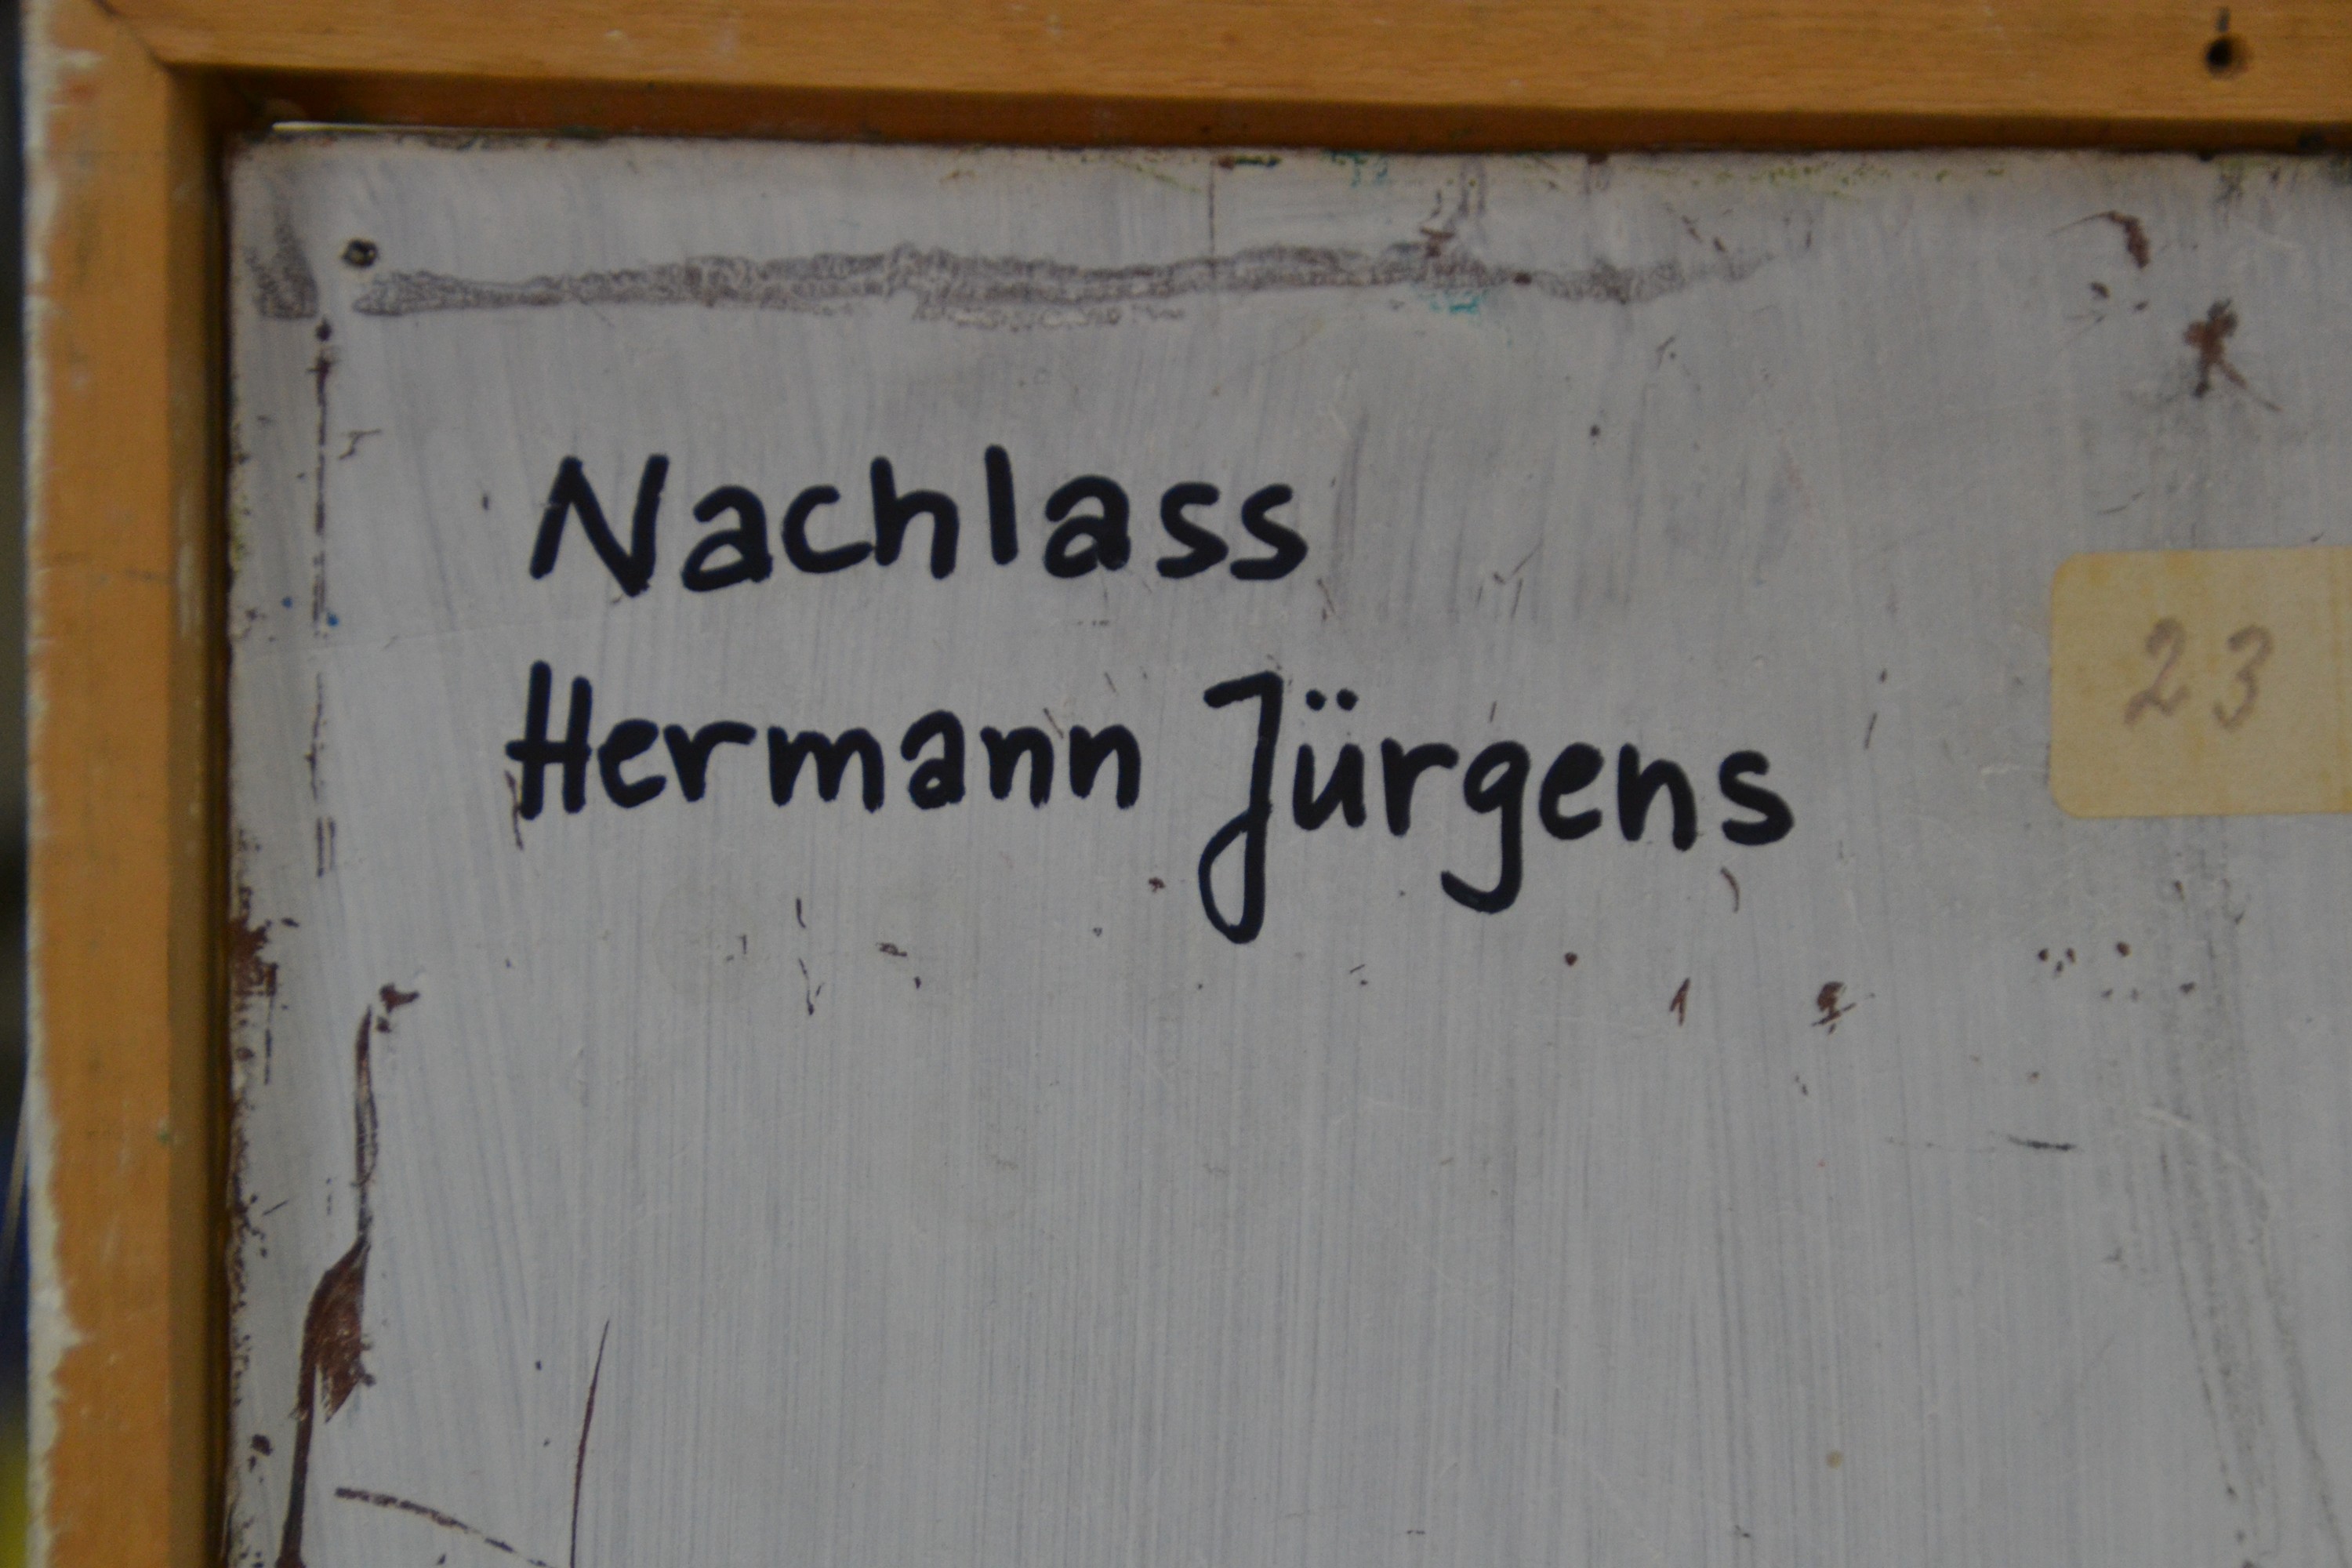 Nachlass
Hermann Jürgens
23